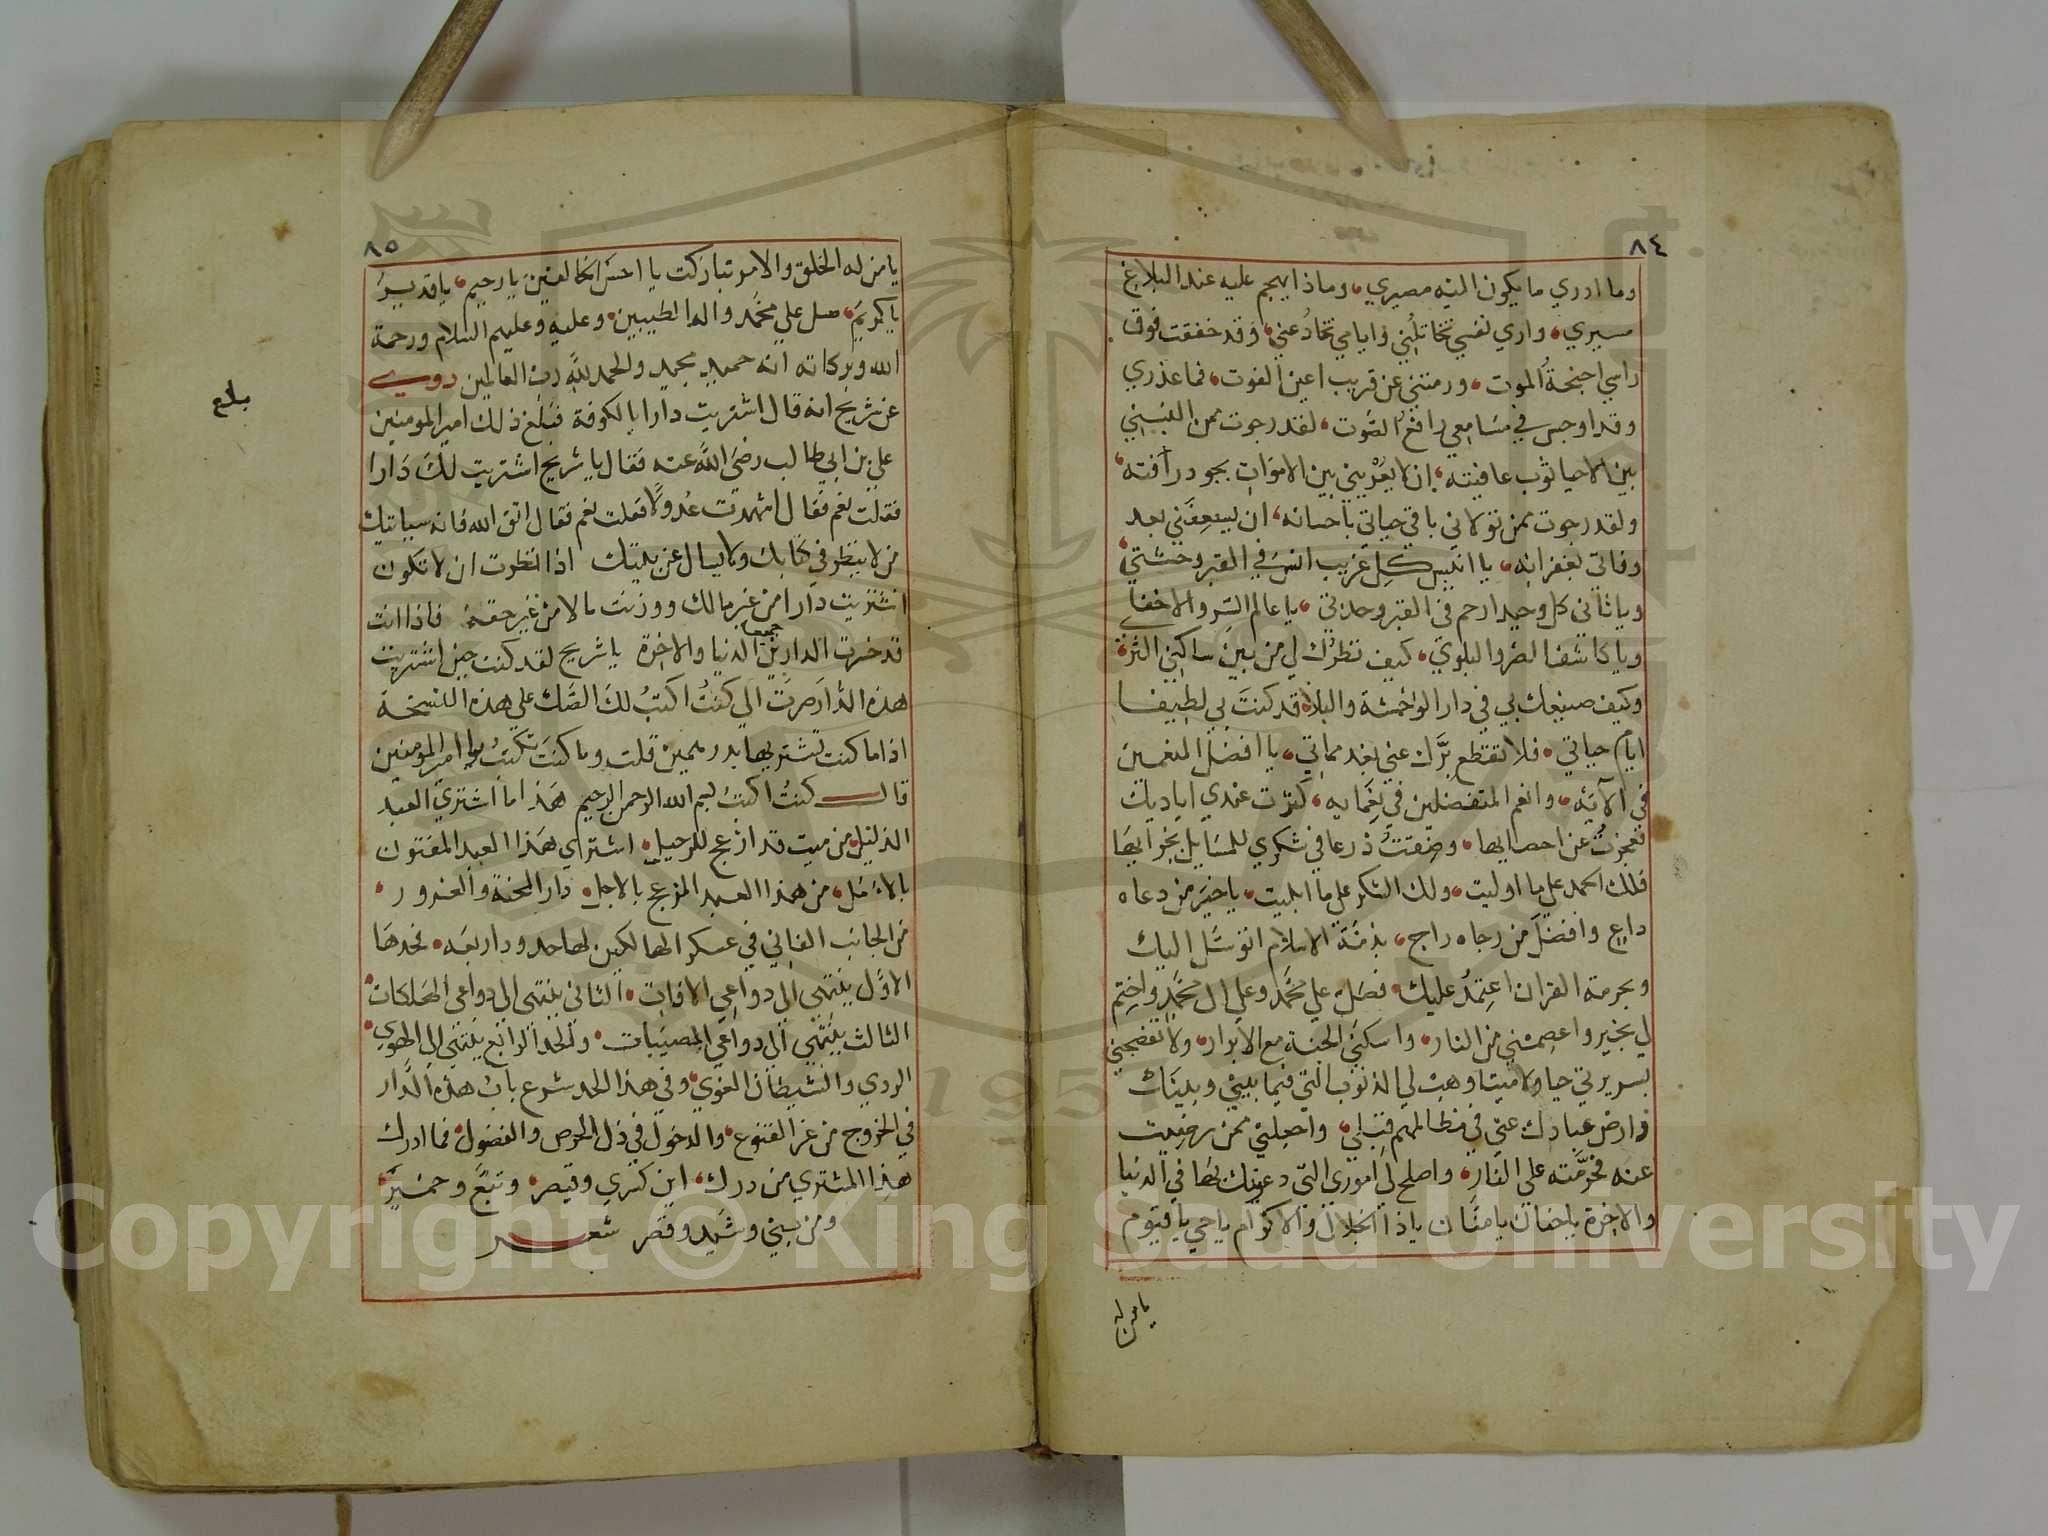 ٨٤
وما ادري ما يكون اليه مصيري، وماذا يهجم عليه عند البلاغ
مسيري، واري نفسي تخاتلني وايامي تخادعني، وقد خفقت فوق
راسي اجنحة الموت، ورمتني عن قريب اعين الفوت، فما عذري
وقد اوجس في مسامعي رافع الصوت، لقد رجوت ممن البسني
بين الاحيا ثوب عافيته، ان لا يعريني بين الاموات بجود رأفته،
ولقد رجوت ممن تولاني باقي حياتي باحسانه، ان يسعفني بعد
وفاتي بغفرانه، يا انيس كل غريب انس في القبر وحشتي،
ويا ثاني كل وحيد ارحم في القبر وحدتي، يا عالم السر والاخفاء
ويا كاشف الضر والبلوي، كيف نظرك لي من بين ساكني الثرى،
وكيف صنيعك بي في دار الوحشة والبلا، قد كنت بي لطيفا
ايام حياتي، فلا تقطع برك عني بعد مماتي، يا افضل المنعمين
في آلآئه، وانعم المتفضلين في نعمايه، كثرت عندي اياديك
فعجزت عن احصايها، وضقت ذرعا في شكري للمسايل بجزايها
فلك الحمد علي ما اوليت، ولك الشكر علي ما ابليت، يا خير من دعاه
داع وافضل من رجاه راج، بذمة الاسلام اتوسل اليك
وبحرمة القران اعتمد عليك، فصل علي محمد وعلي ال محمد واختم
لي بخير واعصمني من النار، واسكني الجنة مع الابرار، ولا تفضحني
بسريرتي حيا ولا ميتا وهب لي الذنوب التي فيما بيني وبينك
وارض عبادك عني في مظالمهم قبلي، واجعلني ممن رضيت
عنه فحرمته علي النار، واصلح لي اموري التي دعوتك بها في الدنيا
والاخرة يا حنان يا منان يا ذا الجلال والاكرام يا حي يا قيوم
يا من له
٨٥
يا من له الخلق والامر تباركت يا احسن الخالقين يا رحيم، يا قدير
يا كريم، صل علي محمد واله الطيبين، وعليه وعليهم السلام ورحمة
الله وبركاته انه حميد مجيد والحمد لله رب العالمين روي
عن شريح انه قال اشتريت دارا بالكوفة فبلغ ذلك امير المومنين
علي بن ابي طالب رضي الله عنه فقال يا شريح اشتريت لك دارا
فقلت نعم فقال اشهدت عدولا فقلت نعم فقال اتق الله فانه سياتيك
من لا ينظر في كتابك ولا يسال عن بينتك اذا انظرت ان لا تكون
اشتريت دارا من غير مالك ووزنت مالا من غير حقه فاذا انت
قد خسرت الدارين جميعا الدنيا والاخرة يا شريح لقد كنت حين اشتريت
هذه الدار صرت الي كنت اكتب لك الصك علي هذه النسخة
اذا ما كنت تشتريها بدرهمين قلت وما كنت تكتب يا امير المومنين
قال كنت اكتب بسم الله الرحمن الرحيم هذا ما اشتري العبد
الذليل من ميت قد ازعج للرحيل، اشتراي هذا العبد المفتون
بالامل، من هذا العبد المزعج بالاجل دار المحنة والغرور،
من الجانب الفاني في عسكر الهالكين لها حدود اربعه، فحدها
الاول ينتهي الي دواعي الافات، الثاني ينتهي الي دواعي الهلكات،
الثالث ينتهي الي دواعي المصيبات، والحد الرابع ينتهي الي الهوي،
الردي والشيطان الغوي، وفي هذا الحد شرع باب هذه الدار
في الخروج من عز القنوع، والدخول في ذل الحرص والفضول، فما ادرك
هذا المشتري من درك، اين كسري وقيصر، وتبع وحمير،
ومن بني وشيد وقصر شعر
بلغ
Copyright © King Saud University
1957